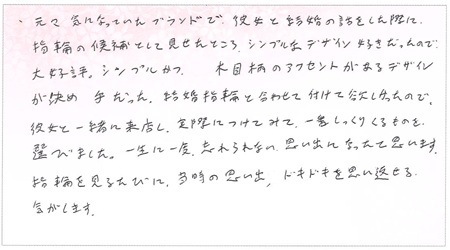 ・元々気になっていたブランドで、彼女と結婚の話をした際に、
指輪の候補として見せたところ、シンプルなデザイン好きだったので
大好評。シンプルかつ、木目柄のアクセントがあるデザイン
が決め手だった。結婚指輪と合わせて付けて欲しかったので、
彼女と一緒に来店し、実際につけてみて、一番しっくりくるものを
選びました。一生に一度、忘れられない思い出になったと思います。
指輪を見るたびに、当時の思い出、ドキドキを思い返せる
気がします。